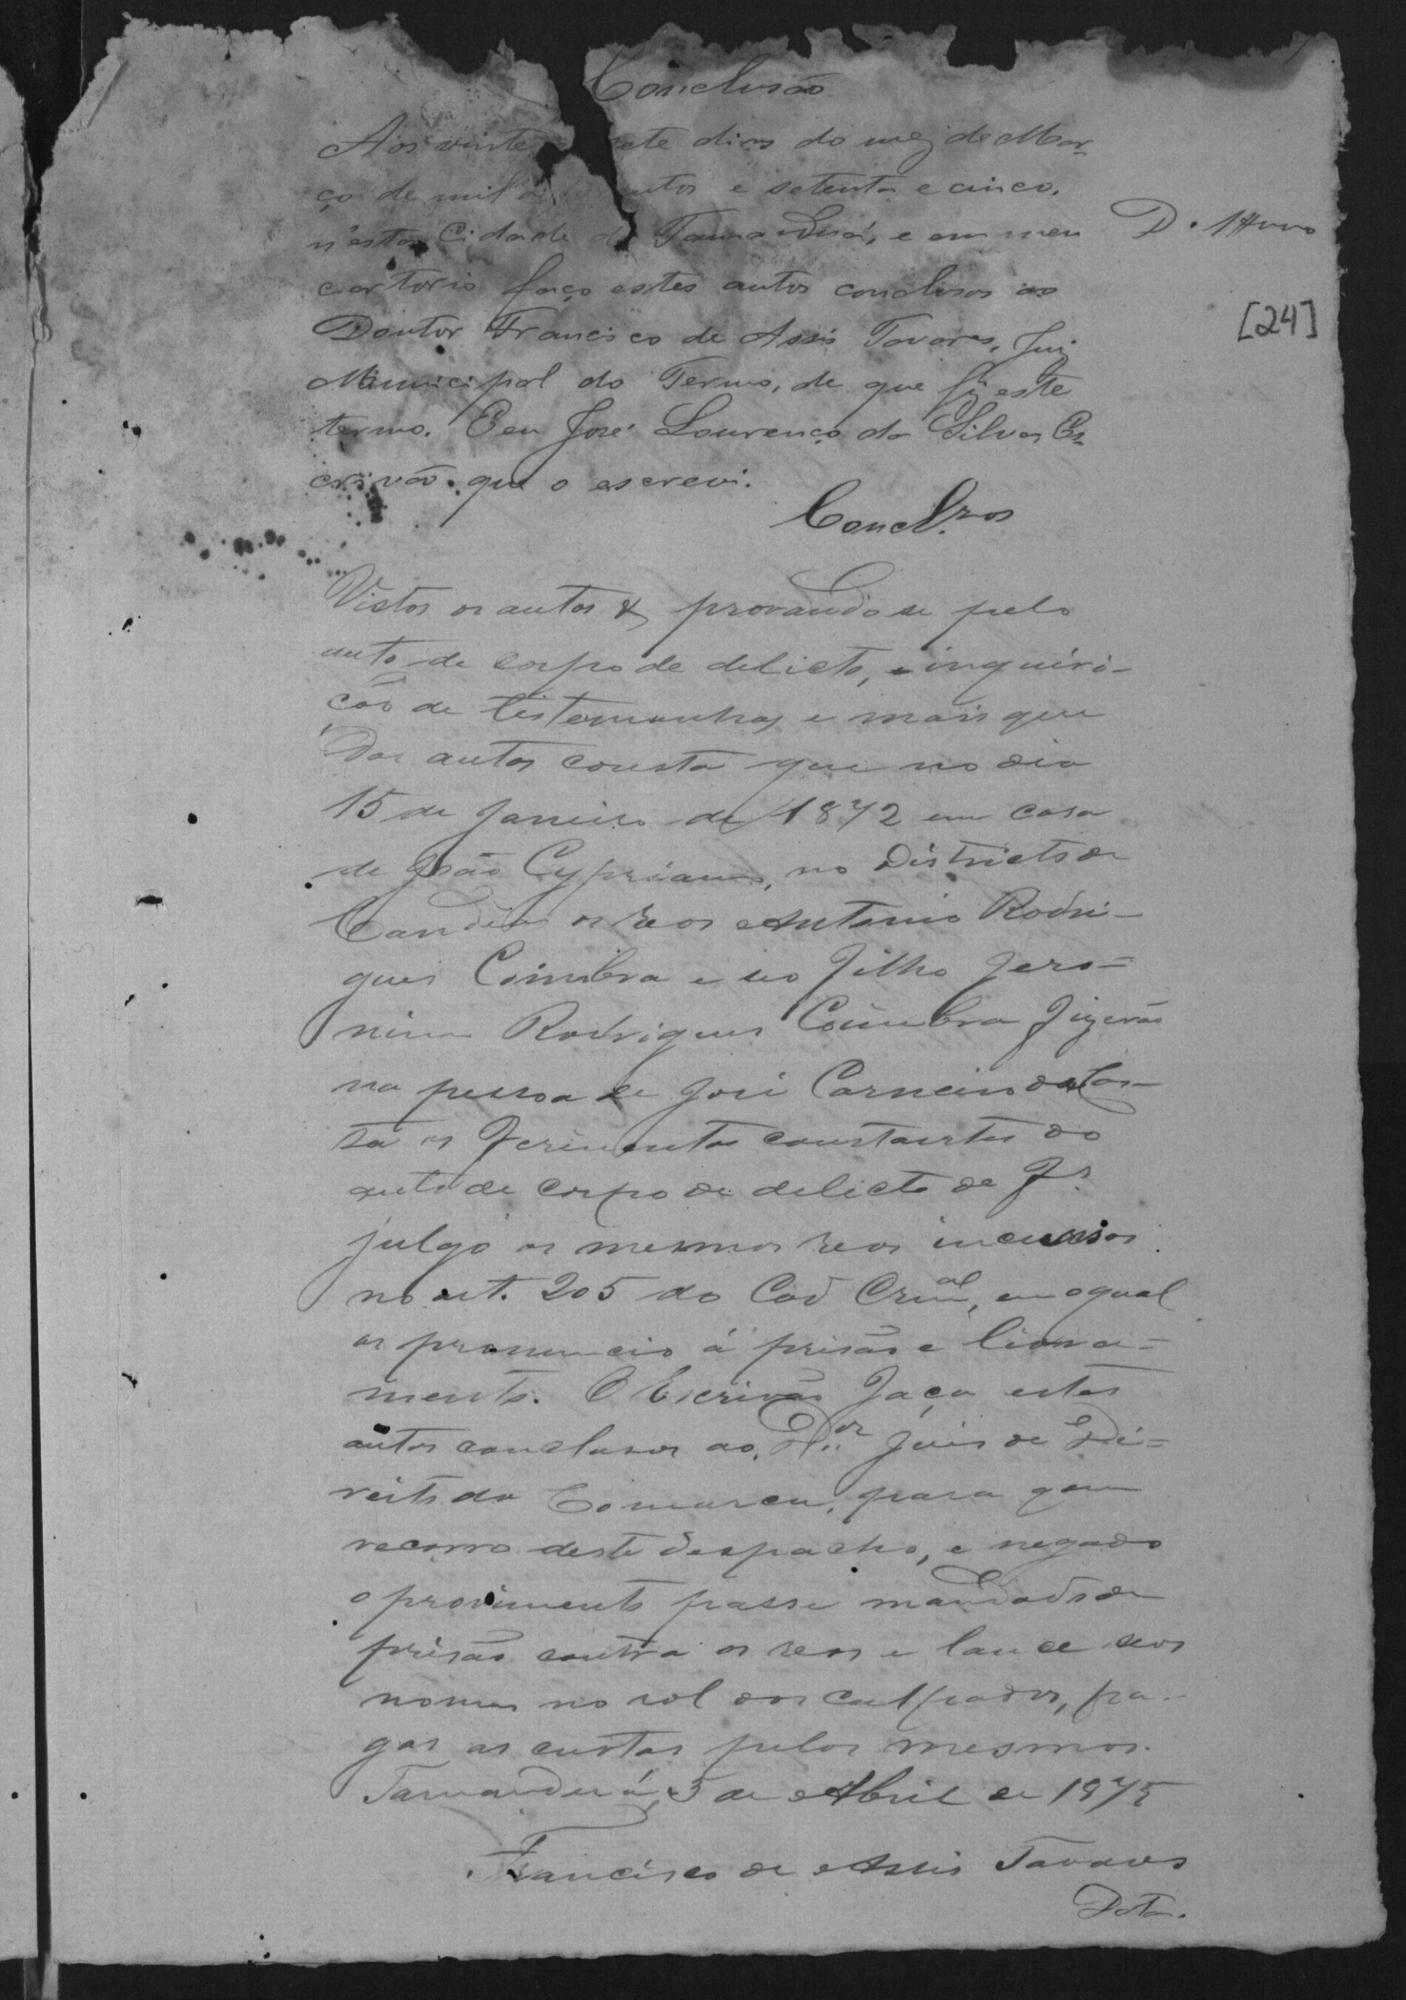 Conclusão
Aos vinte ete dias do mez de Mar-
ço de mil entos e setenta e cinco,
n'esta Cidade de Tamanduá, e em meu
cartorio faço estes autos conclusos ao
Doutor Francisco de Assis Tavares, Juiz
Municipal do Termo, de que fiz este
termo. E eu José Lourenço da Silva Es-
crivão que o escrevi.
Concl.ros
Vistos os autos & provando se pelo
auto de corpo de delicto, e inquiri-
ção de testemunhas e mais que
dos autos consta que no dia
15 de Janeiro de 1872 em casa
de João Cypriano, no Districto de
Candêas os reos Antonio Rodri-
gues Coimbra e seo filho Jero-
nimo Rodrigues Coimbra fizerão
na pessoa de José Carneiro da Cos-
ta os ferimentos constantes do
auto de corpo de delicto de f.s
julgo os mesmos reos incursos
no art. 205 do Cod Crimal, em o qual
os pronuncio á prisão e livra-
mento. O Escrivão faça estes
autos conclusos ao D.or Juis de Di-
reito da Comarca, para quem
recorro deste despacho, e negado
o provimento passe mandado de
prisão contra os reos e lance seos
nomes no rol dos culpados, pa-
gas as custas pelos mesmos.
Tamanduá, 5 de Abril de 1875
Francisco de Assis Tavares
Data.
D.
[24]